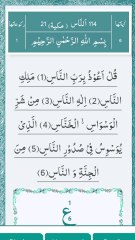 114 اَلنَّاسِ ( مكية) 21
بِسْمِ اللهِ الرَّحْمٰنِ الرَّحِيْمِ
قُلْ اَعُوْذُ بِرَبِّ النَّاسِ(1) مَلِكِ
النَّاسِ(2) اِلٰهِ النَّاسِ(3) مِنْ شَرِّ
الْوَسْوَاسِ ۙ الْخَنَّاسِ(4) الَّذِيْ
يُوَسْوِسُ فِيْ صُدُوْرِ النَّاسِ(5) مِنَ
الْجِنَّةِ وَ النَّاسِ(6)
ع